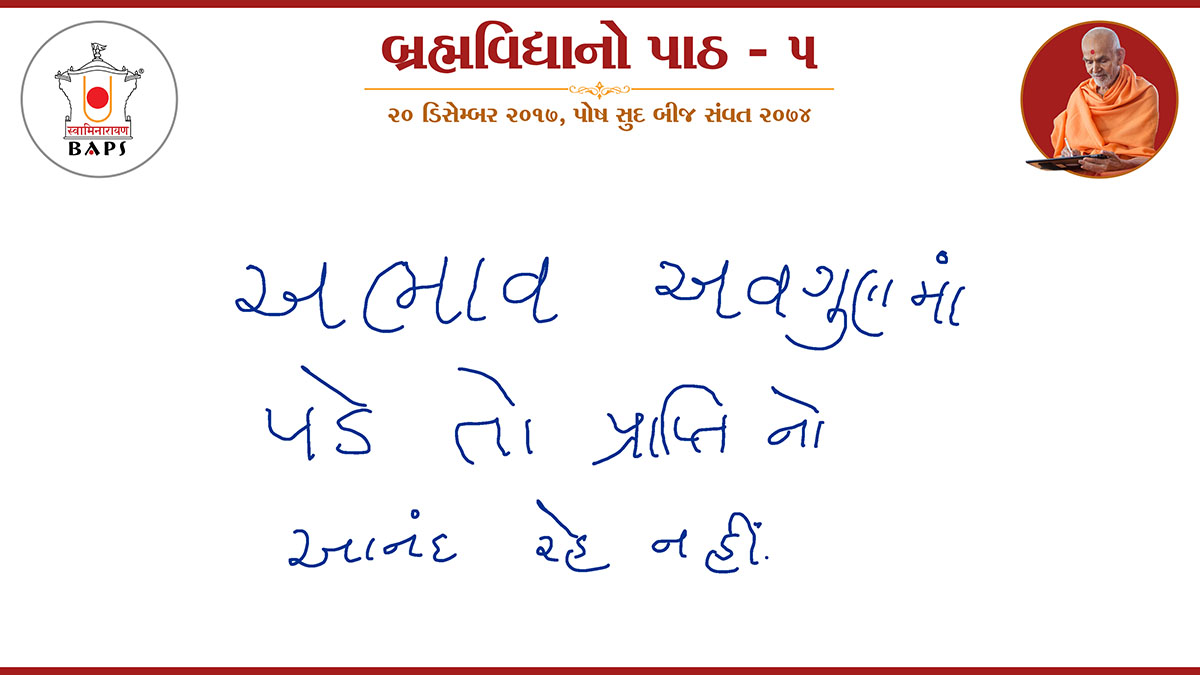 બ્રહ્મવિદ્યાનો પાઠ - ૫
૨૦ ડિસેમ્બર ૨૦૧૭, પોષ સુદ બીજ સંવત ૨૦૭૪
स्वामिनारायण
BAPS
અભાવ અવગુણમાં
પડે તો પ્રાપ્તિ નો
આનંદ રહે નહીં.